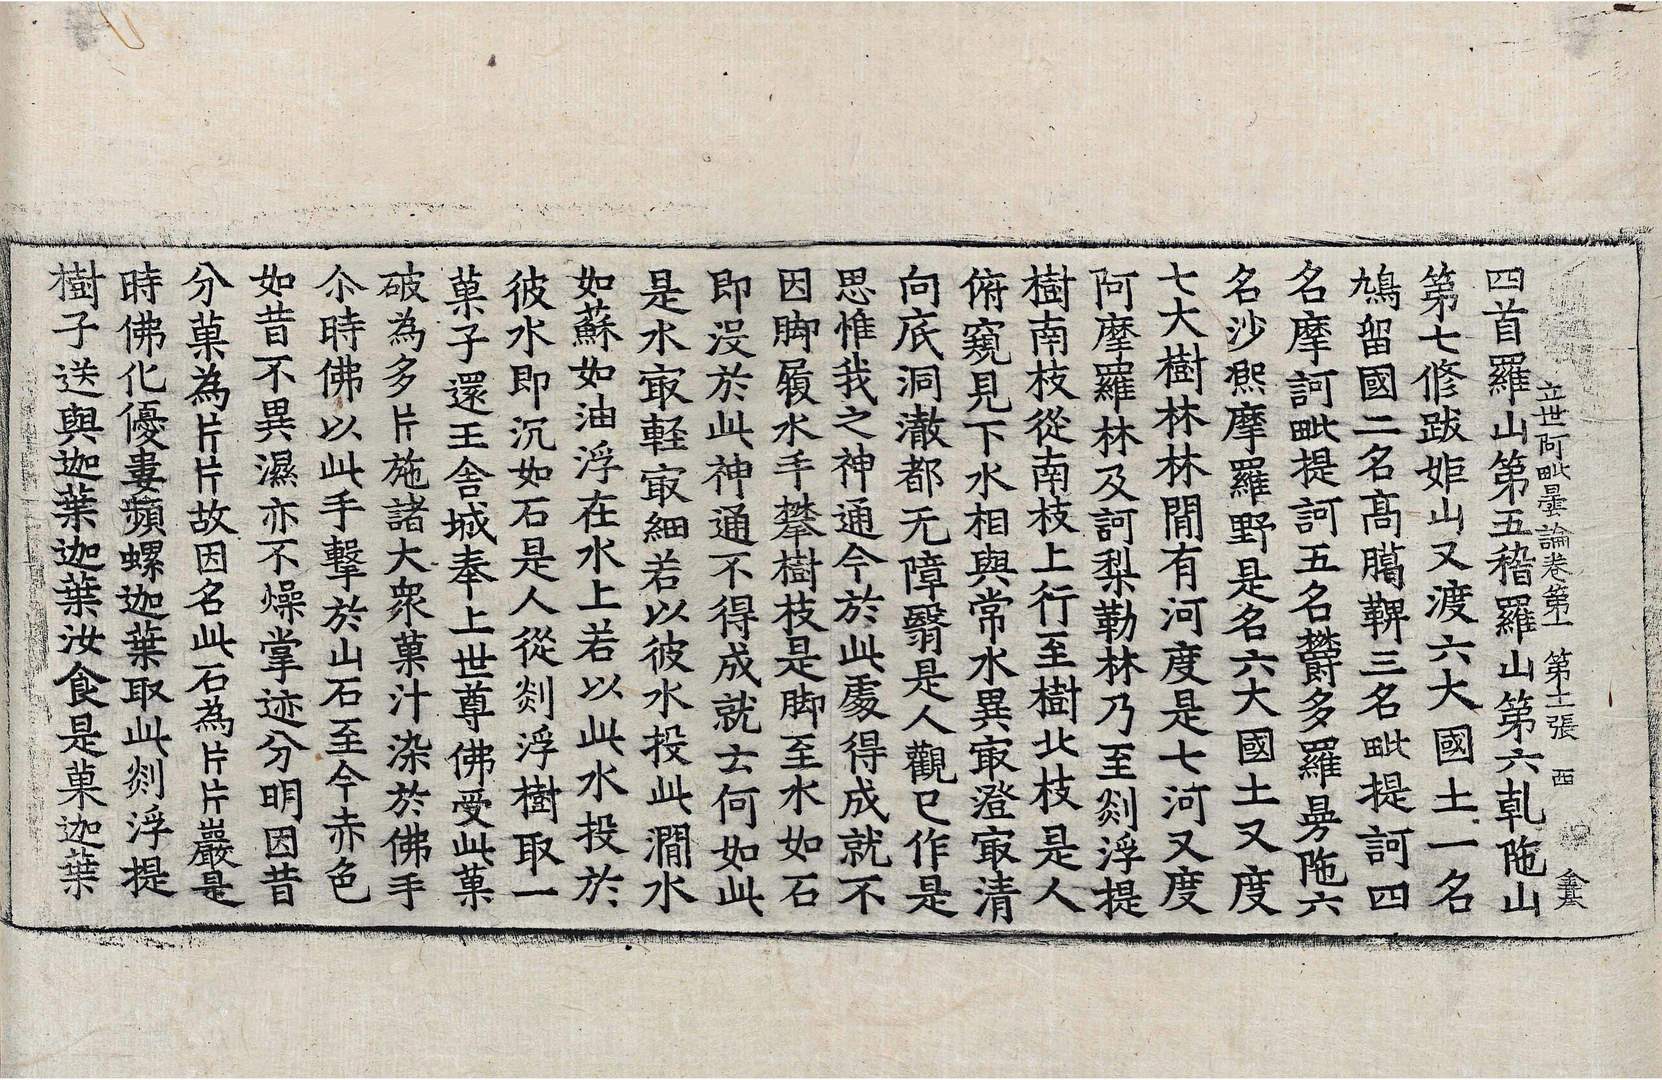 立世阿毗曇論卷第一 第十二張 西
四首羅山第五稽羅山第六乹陁山
第七修跋姖山又渡六大國土一名
鳩留國二名髙臈鞞三名毗提訶四
名摩訶毗提訶五名欝多羅曼陁六
名沙熈摩羅野是名六大國土又度
七大樹林林閒有河度是七河又度
阿摩羅林及訶梨勒林乃至剡浮提
樹南枝從南枝上行至樹北枝是人
俯窺見下水相與常水異㝡澄㝡清
向底洞澈都无障翳是人觀已作是
思惟我之神通今於此處得成就不
因脚履水手攀樹枝是脚至水如石
即沒於此神通不得成就云何如此
是水㝡軽㝡細若以彼水投此㵎水
如蘇如油浮在水上若以此水投於
彼水即沉如石是人從剡浮樹取一
菓子還王舍城奉上世尊佛受此菓
破為多片施諸大衆菓汁染於佛手
尒時佛以此手擊於山石至今赤色
如昔不異濕亦不燥掌迹分明因昔
分菓為片片故因名此石為片片巖是
時佛化優婁蘋螺迦葉取此剡浮提
樹子送與迦葉迦葉汝食是菓迦葉